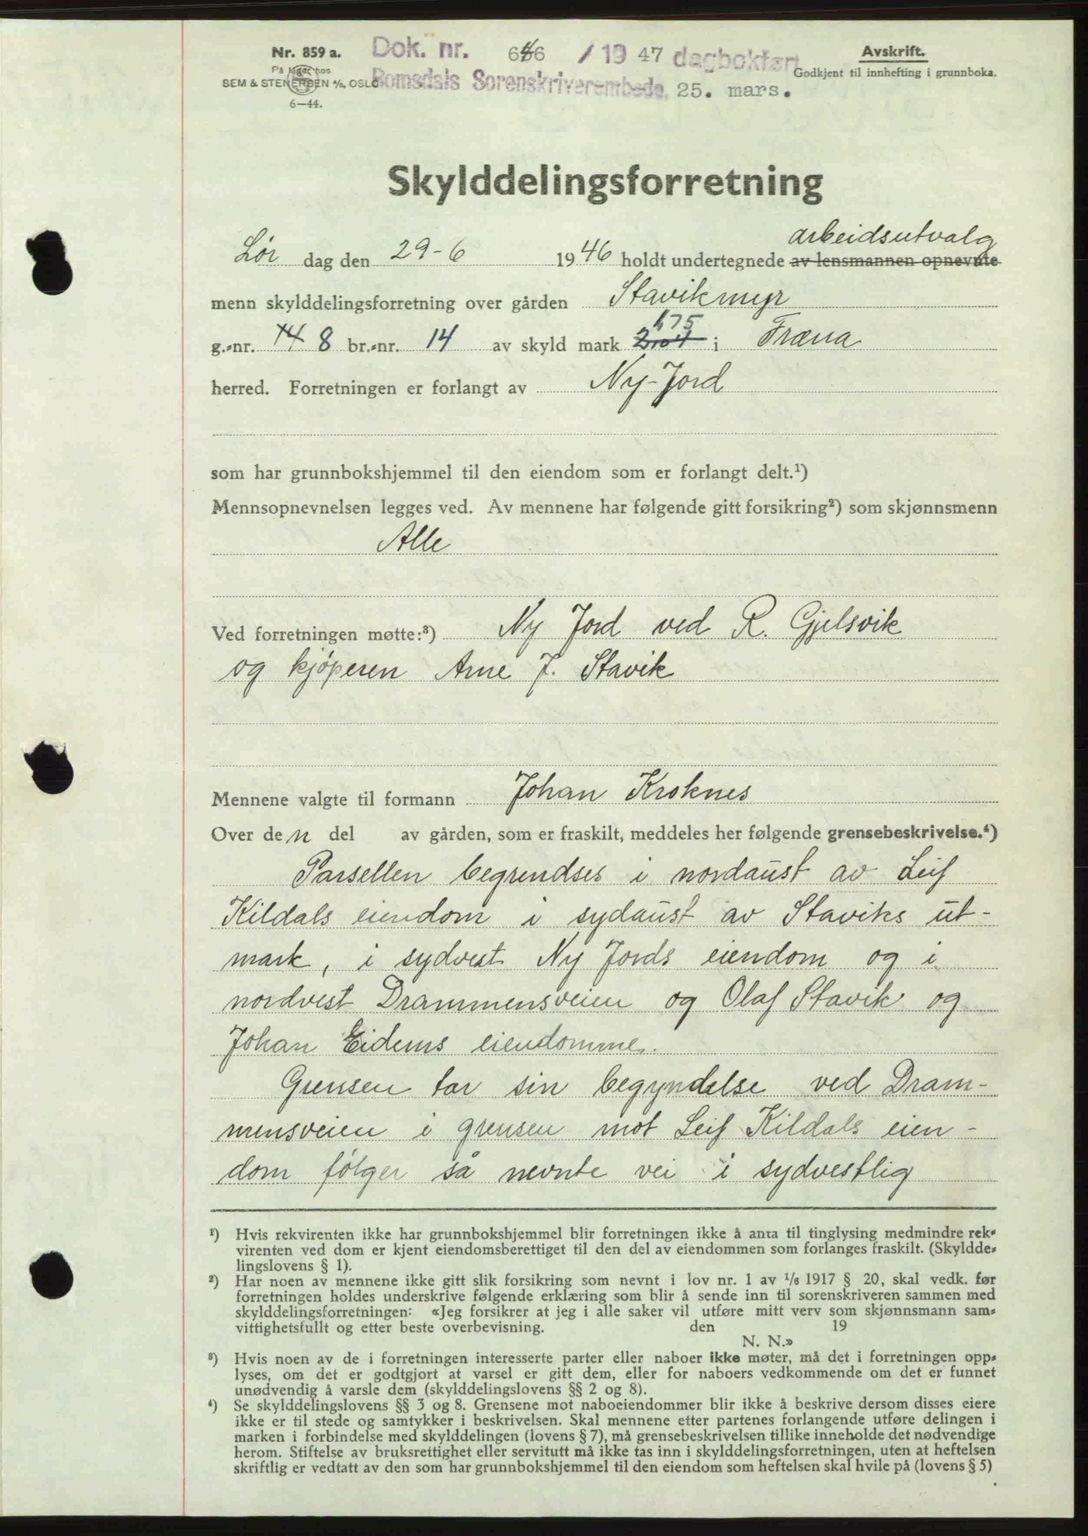 Nr. 859 a.
På lager hos
SEM & STENERSEN A/S, OSLO
6—44.
Dok. nr. 646 / 19 47 dagbokført
Romsdals Sorenskriverembede, 25. mars.
Avskrift.
Godkjent til innhefting i grunnboka.
Skylddelingsforretning
arbeidsutvalg
Lør dag den 29-6 1946 holdt undertegnede av lensmannen opnevnte
menn skylddelingsforretning over gården Stavikmyr
1,75
g.-nr. 14 8 br.-nr. 14 av skyld mark i Fræna
herred. Forretningen er forlangt av Ny-Jord
som har grunnbokshjemmel til den eiendom som er forlangt delt.¹)
Mennsopnevnelsen legges ved. Av mennene har følgende gitt forsikring²) som skjønnsmenn
Alle
Ved forretningen møtte:³) Ny Jord ved R. Gjelsvik
og kjøperen Arne J. Stavik
Mennene valgte til formann Johan Kroknes
Over den del av gården, som er fraskilt, meddeles her følgende grensebeskrivelse.⁴)
Parsellen begrendses i nordaust av Leif
Kildals eiendom i sydaust av Staviks ut-
mark, i sydvest Ny Jords eiendom og i
nordvest Drammensveien og Olaf Stavik og
Johan Eidems eiendomme.
Grensen tar sin begyndelse ved Dram-
mensveien i grensen mot Leif Kildals eien-
dom følger så nevnte vei i sydvestlig
¹) Hvis rekvirenten ikke har grunnbokshjemmel blir forretningen ikke å anta til tinglysing medmindre rek-
virenten ved dom er kjent eiendomsberettiget til den del av eiendommen som forlanges fraskilt. (Skyldde-
lingslovens § 1).
²) Har noen av mennene ikke gitt slik forsikring som nevnt i lov nr. 1 av 1/6 1917 § 20, skal vedk. før
forretningen holdes underskrive følgende erklæring som blir å sende inn til sorenskriveren sammen med
skylddelingsforretningen: «Jeg forsikrer at jeg i alle saker vil utføre mitt verv som skjønnsmann sam-
vittighetsfullt og etter beste overbevisning. den 19
N. N.»
³) Hvis noen av de i forretningen interesserte parter eller naboer ikke møter, må det i forretningen opp-
lyses, om det er godtgjort at varsel er gitt dem, eller for naboers vedkommende om det er funnet
unødvendig å varsle dem (skylddelingslovens §§ 2 og 8).
⁴) Se skylddelingslovens §§ 3 og 8. Grensene mot naboeiendommer blir ikke å beskrive dersom disses eiere
ikke er til stede og samtykker i beskrivelsen. Skal mennene etter partenes forlangende utføre delingen i
marken i forbindelse med skylddelingen (lovens § 7), må grensebeskrivelsen tillike inneholde det nødvendige
herom. Stiftelse av bruksrettighet eller servitutt må ikke tas inn i skylddelingsforretningen, uten at heftelsen
skriftlig er vedtatt av den som har grunnbokshjemmel til den eiendom som heftelsen skal hvile på (lovens § 5)